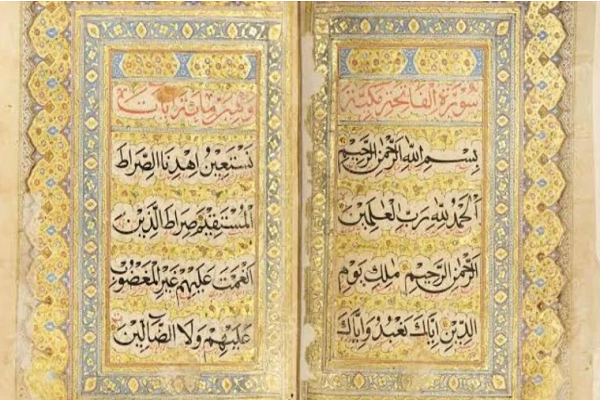 سُورَةُ الْفَاتِحَةِ مَكِّيَّة
بِسْمِ اللهِ الرَّحْمٰنِ الرَّحِيمِ
اَلْحَمْدُ لِلّٰهِ رَبِّ الْعٰلَمِينَ
الرَّحْمٰنِ الرَّحِيمِ مٰلِكِ يَوْمِ
الدِّينِ اِيَّاكَ نَعْبُدُ وَاِيَّاكَ
نَسْتَعِينُ اِهْدِنَا الصِّرَاطَ
الْمُسْتَقِيمَ صِرَاطَ الَّذِينَ
اَنْعَمْتَ عَلَيْهِمْ غَيْرِ الْمَغْضُوبِ
عَلَيْهِمْ وَلَا الضَّالِّينَ